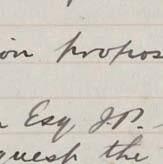 ion propos
n Esq J.P.
quest the